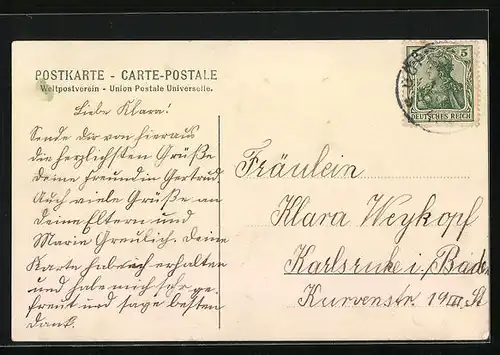 POSTKARTE - CARTE-POSTALE
Weltpostverein - Union Postale Universelle.
5
DEUTSCHES REICH
Liebe Klara!
Sende dir von hieraus
die herzlichsten Grüße
deine Freundin Gertrud.
Auch viele Grüße an
deine Eltern und
Marie Greulich. Deine
Karte habe ich erhalten
und habe mich sehr ge-
freut und sage besten
Dank.
Fräulein
Klara Weykopf
Karlsruhe i./Baden
Kurvenstr. 19 III. St